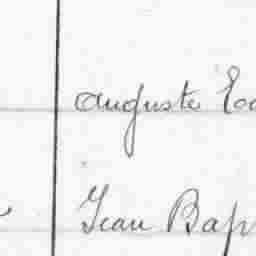 Auguste Ed
Jean Bap